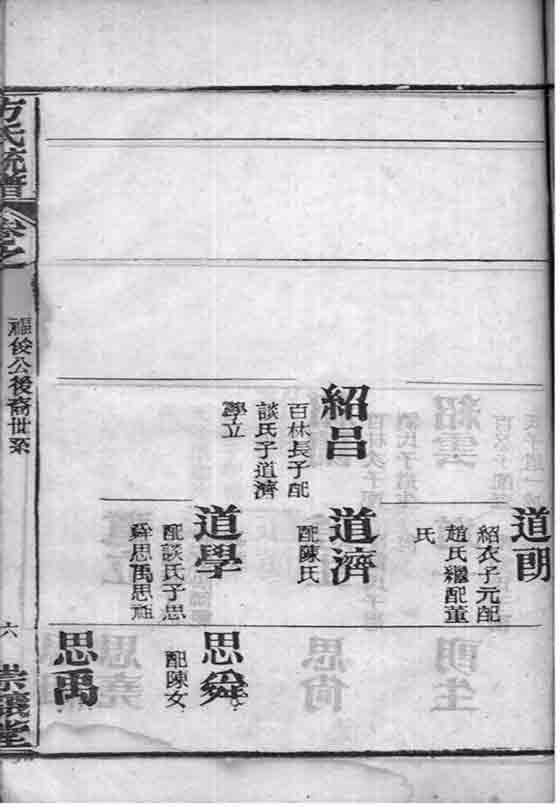 道朗
紹衣子元配
趙氏繼配董
氏
紹呂
百林長子配
談氏子道濟
學立
道濟
配陳氏
道學
配談氏子思
舜思禹思
思舜
配陳女
思禹
方氏統譜
卷之
福俊公後裔世系
六
崇義堂